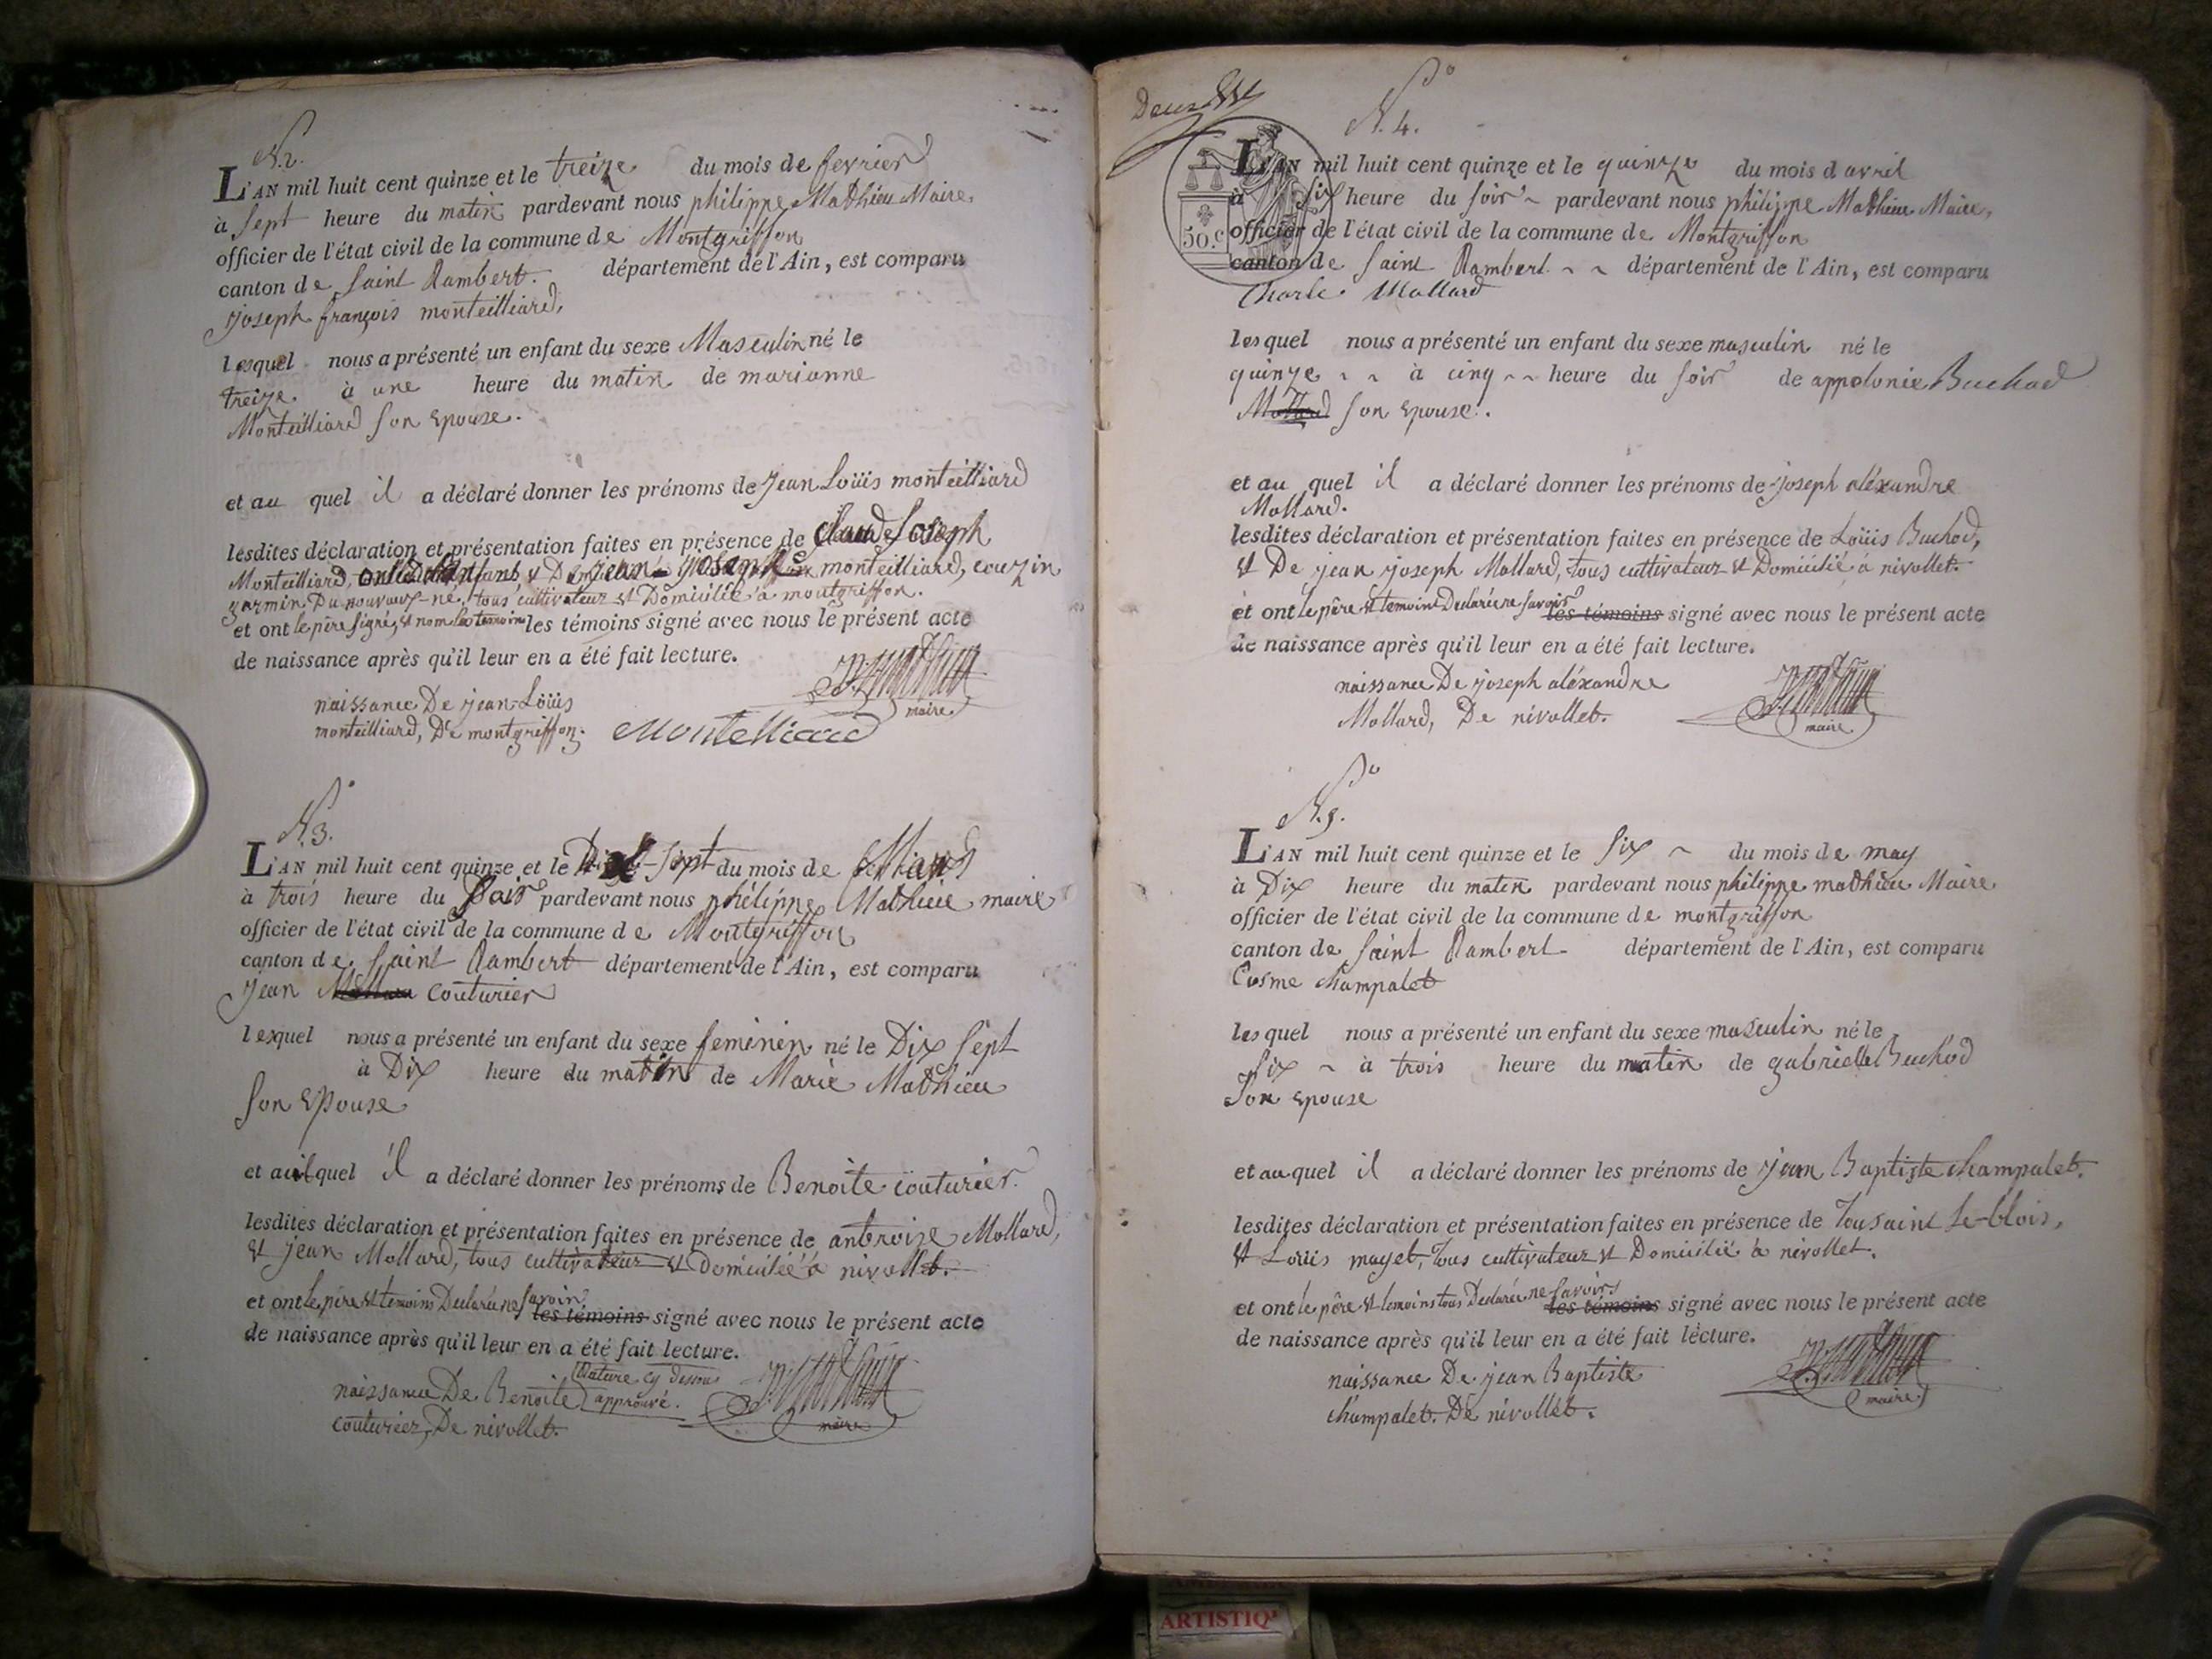 N.2.
L'AN mil huit cent quinze et le treize du mois de fevrier
à sept heure du matin pardevant nous philippe Mathieu Maire,
officier de l'état civil de la commune de Montgriffon
canton de saint Rambert. département de l'Ain, est comparu
joseph françois monteilliard,
lesquel nous a présenté un enfant du sexe Masculin né le
treize à une heure du matin de marianne
Monteilliard son epouse.
et au quel il a déclaré donner les prénoms de jean Loüis monteilliard
lesdites déclaration et présentation faites en présence de Claude Joseph
Monteilliard, & De jean joseph monteilliard, couzin
germin Du nouveaux-ne, tous cultivateur & Domicilié à montgriffon.
et ont le père signé, & nom les temoins les témoins signé avec nous le présent acte
de naissance après qu'il leur en a été fait lecture.
naissance De jean-Loüis
monteilliard, De montgriffon.
maire
Montelliard
N.° 3.
L'AN mil huit cent quinze et le Dix-sept du mois de Mars
à trois heure du soir pardevant nous philippe Mathieu maire
officier de l'état civil de la commune de Montgriffon
canton de saint Rambert département de l'Ain, est comparu
jean couturier
lesquel nous a présenté un enfant du sexe feminin né le Dix sept
à Dix heure du matin de Marie Mathieu
son epouse
et au quel il a déclaré donner les prénoms de Benoite couturier.
lesdites déclaration et présentation faites en présence de anbroize Mollard,
& jean Mollard, tous cultivateur & Domicilié à nivollet.
et ont le père & temoins Declaré ne savoir les témoins signé avec nous le présent acte
de naissance après qu'il leur en a été fait lecture.
Rature cy dessus
naissance De Benoite approuvé.
couturier, De nivollet.
maire
N.° 4.
50.c
L'AN mil huit cent quinze et le quinze du mois d avril
à six heure du soir pardevant nous philippe Mathieu Maire,
officier de l'état civil de la commune de Montgriffon
canton de saint Rambert département de l'Ain, est comparu
Charle Mollard
lesquel nous a présenté un enfant du sexe masculin né le
quinze à cinq heure du soir de appolonie Buchod
Mollard son epouse.
et au quel il a déclaré donner les prénoms de joseph aléxandre
Mollard.
lesdites déclaration et présentation faites en présence de Loüis Buchod,
& De jean joseph Mollard, tous cultivateur & Domicilié à nivollet.
et ont le père & temoins Declaré ne savoir les témoins signé avec nous le présent acte
de naissance après qu'il leur en a été fait lecture.
naissance De joseph aléxandre
Mollard, De nivollet.
maire
N.° 5.
L'AN mil huit cent quinze et le six du mois de may
à Dix heure du maten pardevant nous philippe mathieu Maire
officier de l'état civil de la commune de montgriffon
canton de saint Rambert département de l'Ain, est comparu
Cosme champalet
lesquel nous a présenté un enfant du sexe masculin né le
six à trois heure du matin de gabrielle Buchod
son epouse
et au quel il a déclaré donner les prénoms de jean Baptiste champalet.
lesdites déclaration et présentation faites en présence de Tousaint Le-blois,
& Loüis mayet, tous cultivateur & Domicilié à nivollet.
et ont le père & temoins tous Declaré ne savoir les témoins signé avec nous le présent acte
de naissance après qu'il leur en a été fait lecture.
naissance De jean Baptiste
champalet. De nivollet.
maire
ARTISTIQ